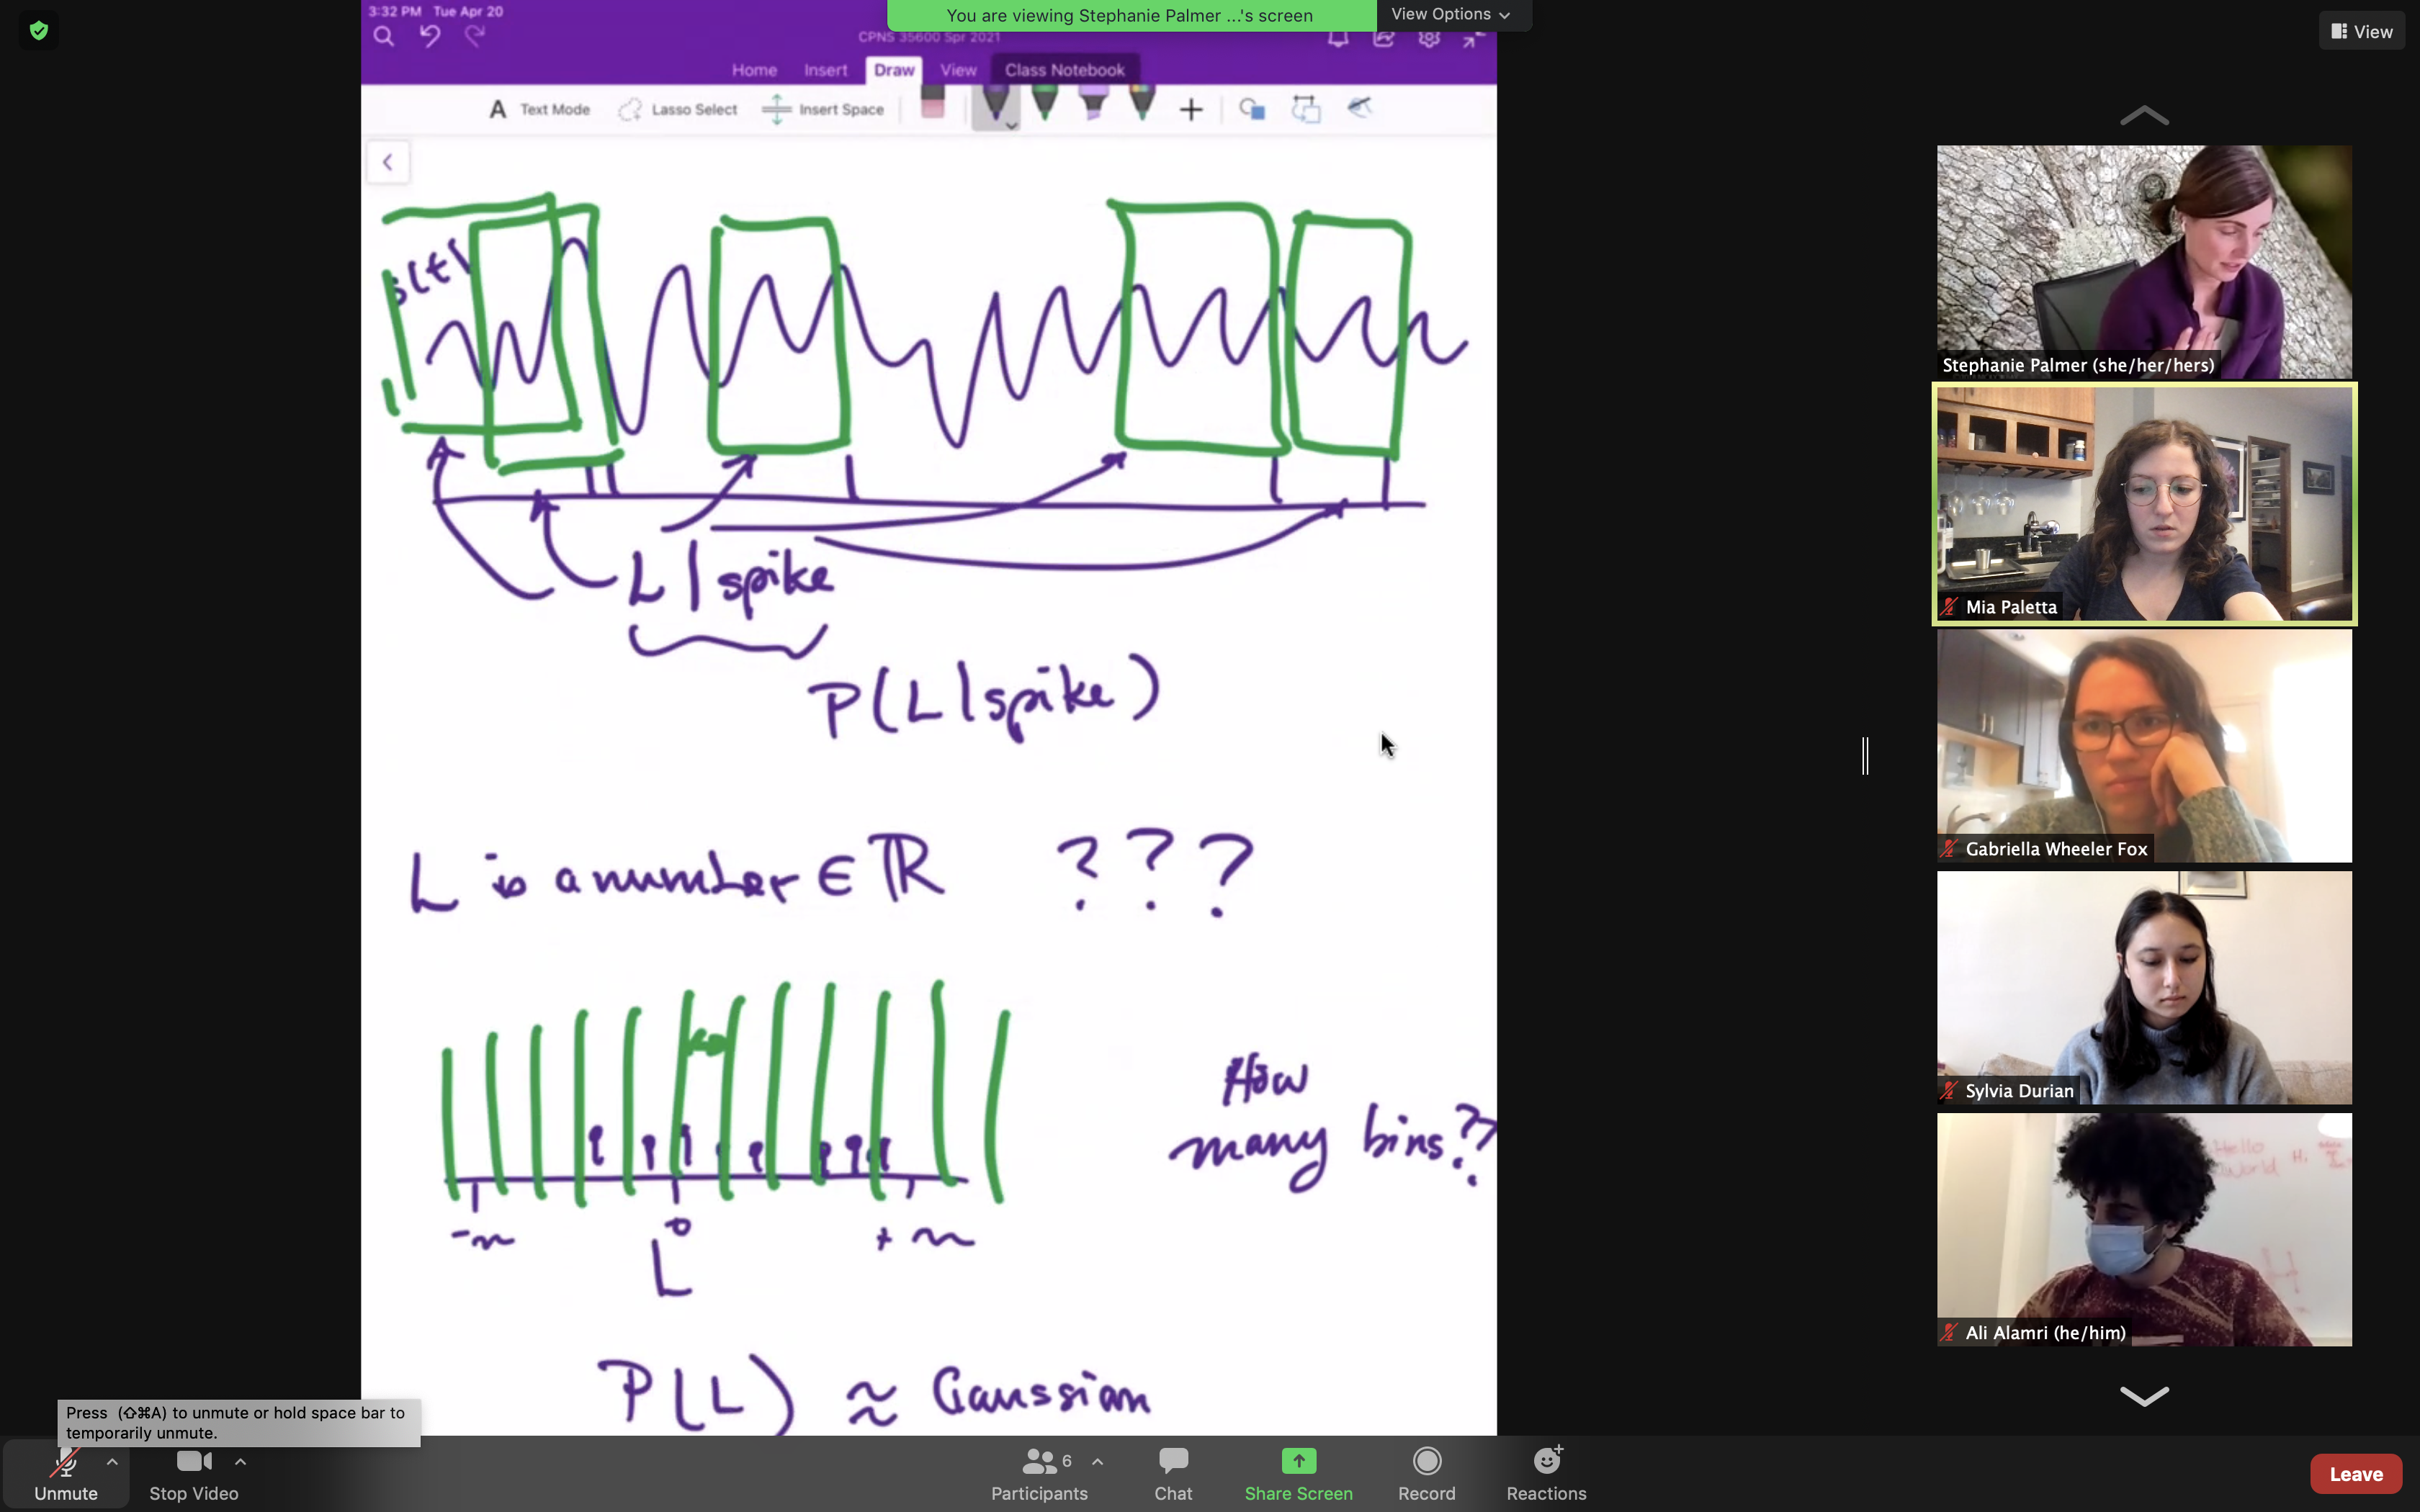 3:32 PM Tue Apr 20
You are viewing Stephanie Palmer ...'s screen
View Options
View
CPNS 35600 Spr 2021
Home Insert Draw View Class Notebook
A Text Mode Lasso Select Insert Space
s(t)
L | spike
P(L | spike)
L is a number ∈ ℝ ???
How
many bins??
-~ 0 + ~
L
P(L) ≈ Gaussian
Stephanie Palmer (she/her/hers)
Mia Paletta
Gabriella Wheeler Fox
Sylvia Durian
Hello
World
Hi.
Ali Alamri (he/him)
Press (⇧⌘A) to unmute or hold space bar to
temporarily unmute.
Unmute
Stop Video
6
Participants
Chat
Share Screen
Record
Reactions
Leave